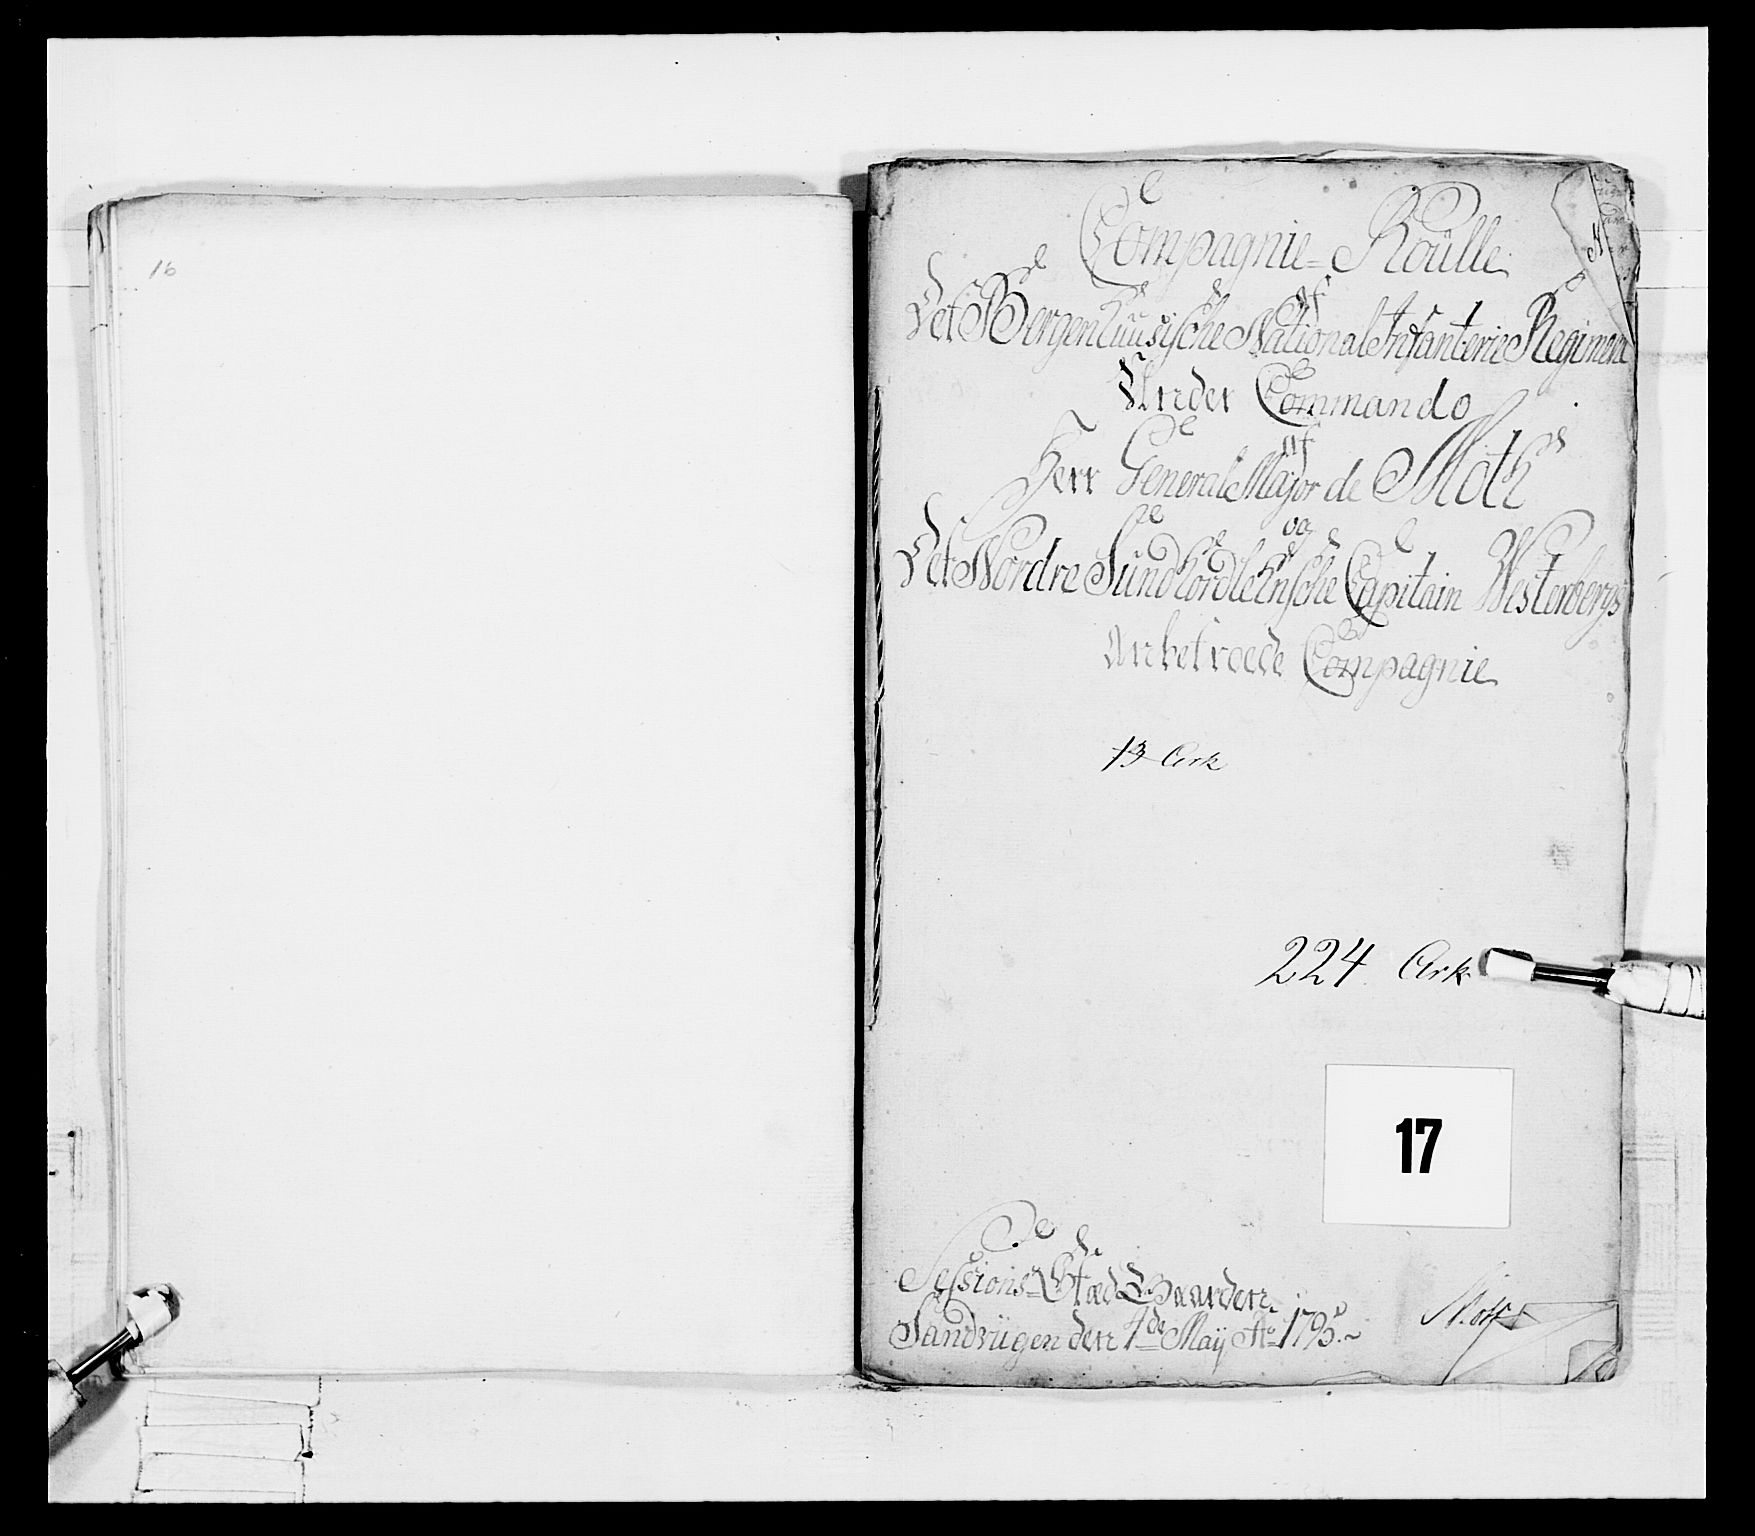 16
Compagnie-Roülle
af
Det Bergenhuusische National Infanterie Regiment
Under Commando
af
Herr General Major de Moth
og
Det Nordre Sündhordlehnsche Capitain Westerbergs
Anbetroede Compagnie
13 Ark
224 Ark
17
Sessions-Stæd Gaarden
Sandvügen den 4de Maÿ Ao 1795.~